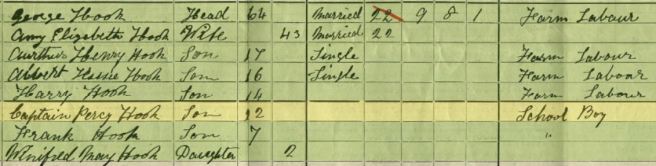 George Hook Head 64 Married 22 9 8 1 Farm Labour
Amy Elizabeth Hook Wife 43 Married 22
Aurthur Henry Hook Son 17 Single Farm Labour
Albert Hook Son 16 Single Farm Labour
Harry Hook Son 14 Farm Labour
Captain Percy Hook Son 12 School Boy
Frank Hook Son 7 "
Winifred May Hook Daughter 2